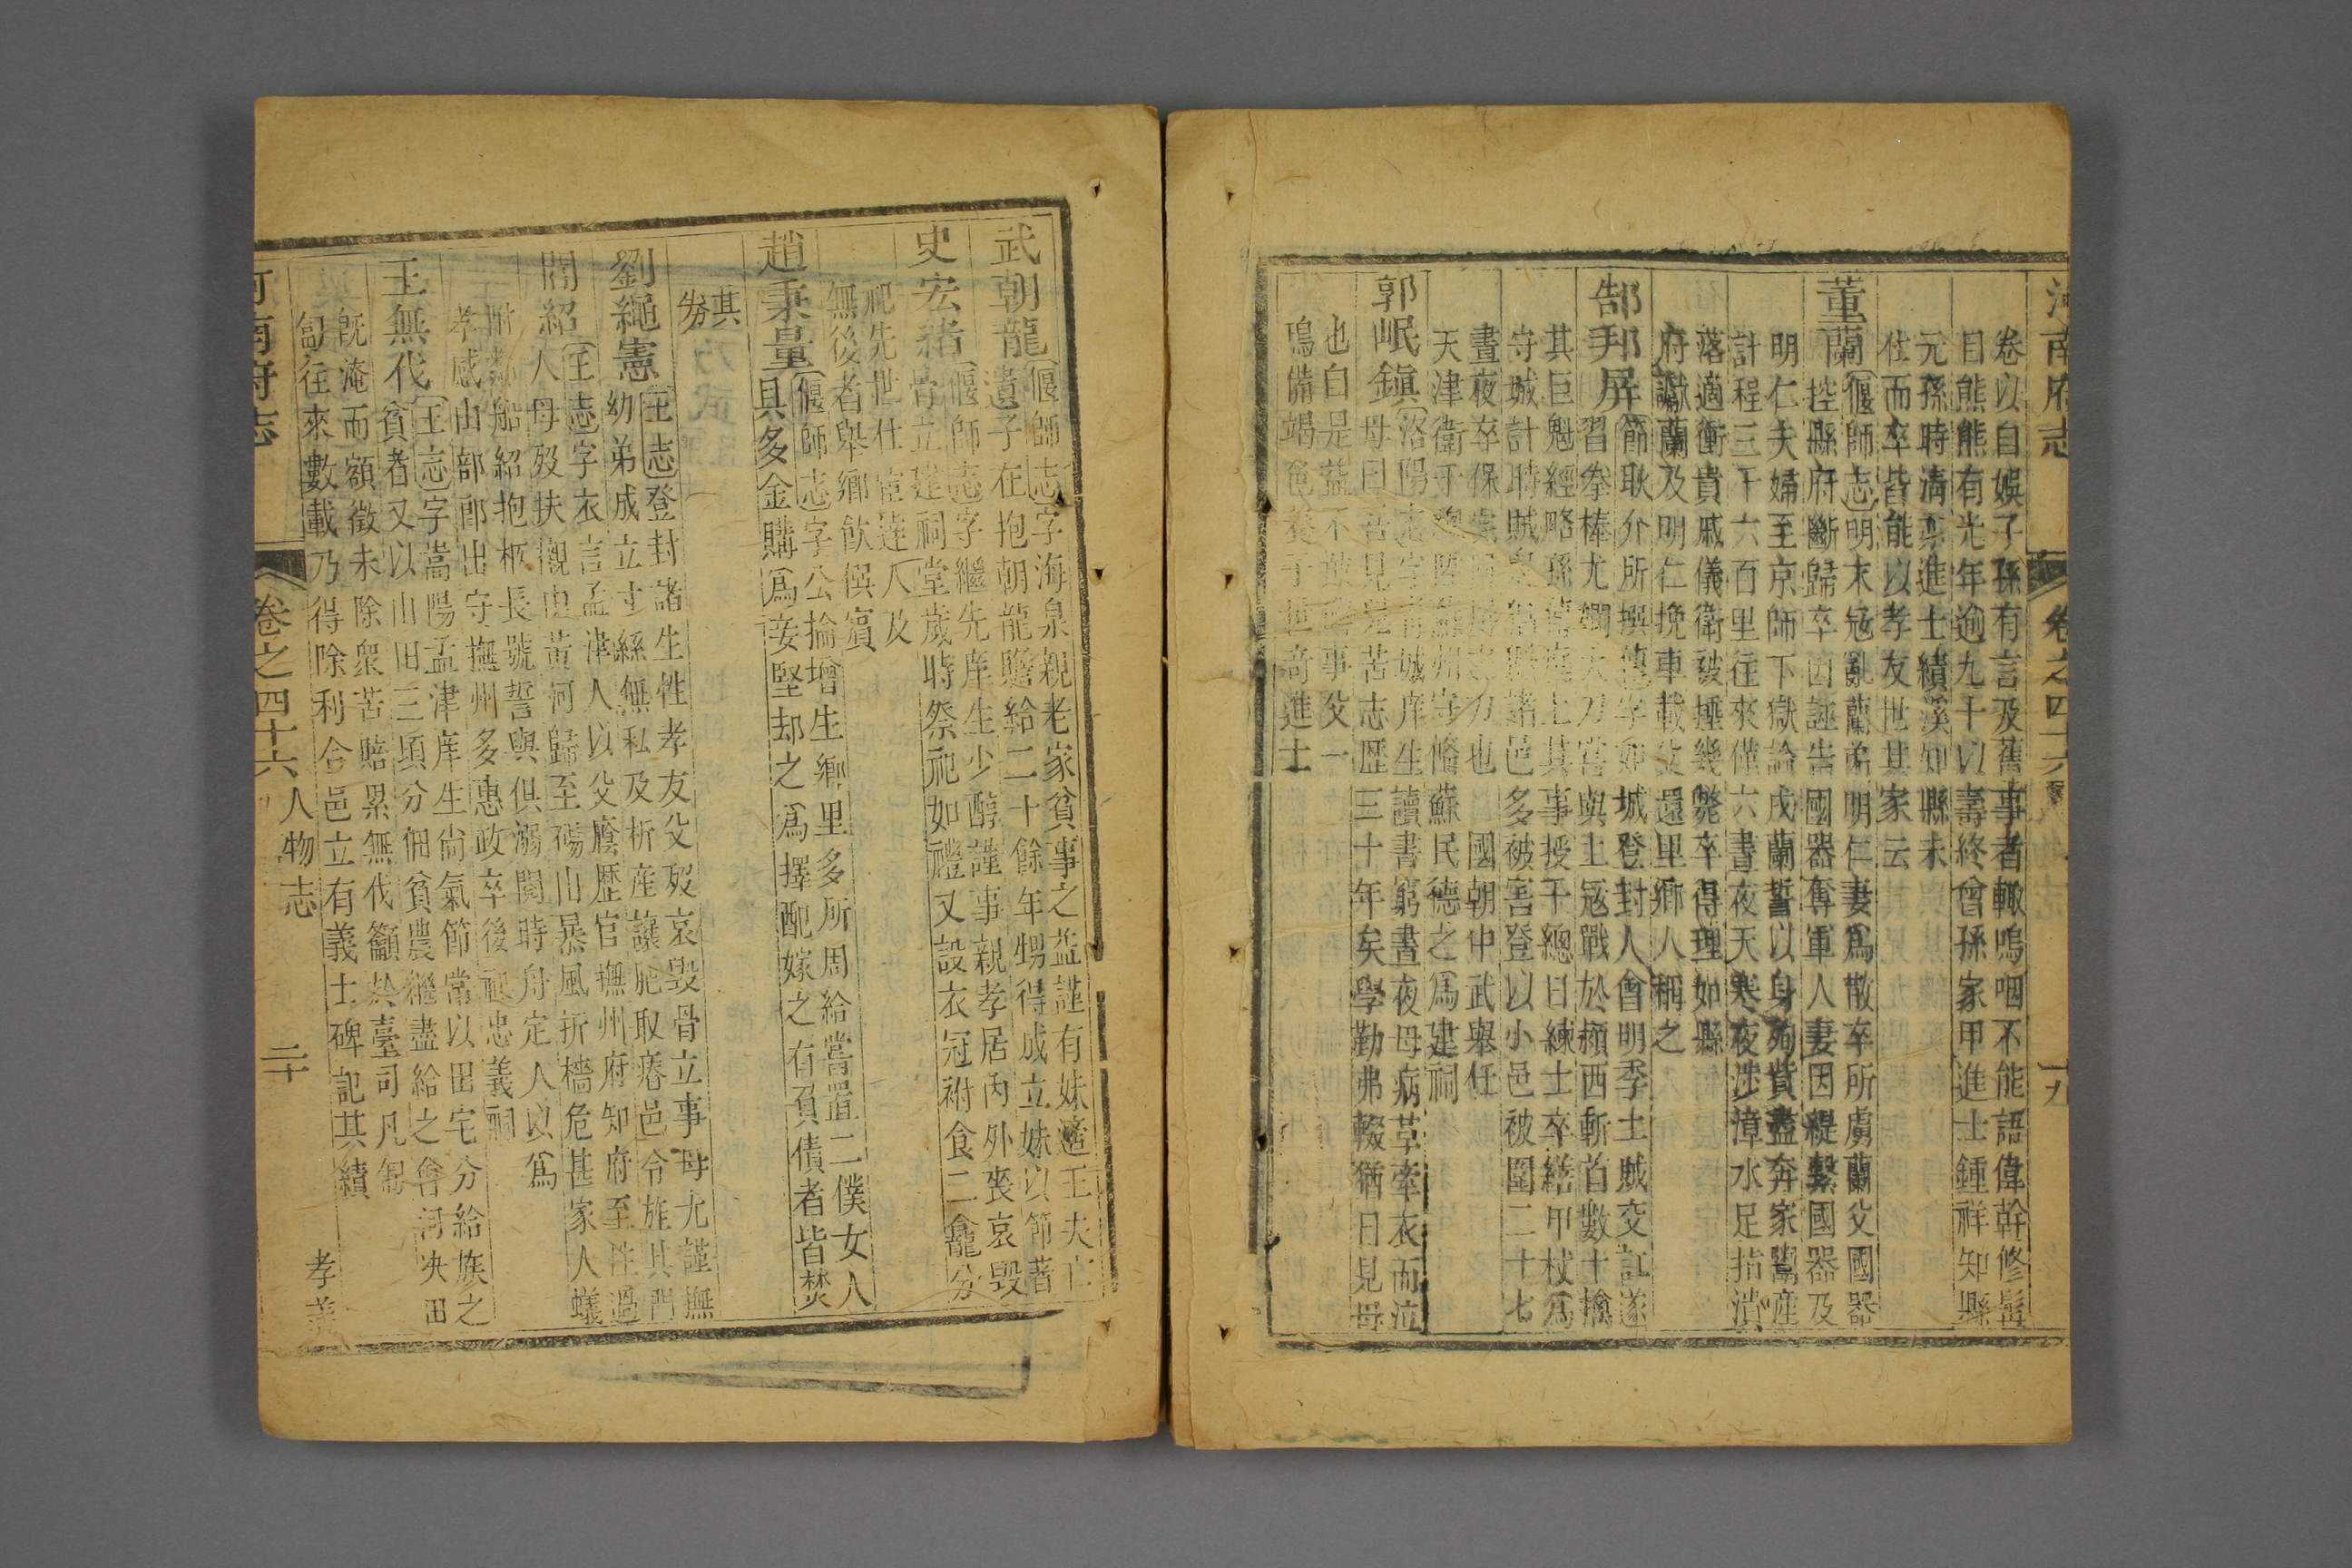 河南府志 卷之四十六 十九
卷以自娛子孫有言及舊事者輒嗚咽不能語偉幹修髯
目熊熊有光年逾九十以壽終曾孫家甲進士鍾祥知縣
元孫時清亭進士績溪知縣未
仕而卒皆能以孝友世其家云
董蘭
偃師志明末寇亂蘭弟明仁妻爲散卒所虜蘭父國器
控縣府斷歸卒因誣告國器奪軍人妻因緹繫國器及
明仁夫婦至京師下獄論戍蘭誓以身殉貲盡奔家鬻產
計程三千六百里往來僅六晝夜天寒夜涉漳水足指潰
落適衝貴戚儀衛被捶幾斃卒得理如縣
府讞蘭及明仁挽車載父還里鄉人稱之
郜邦屏
節耿介所撰傳字 城登封人會明季土賊交訌遂
習拳棒尤嫻大刀嘗與土寇戰於潁西斬首數十擒
其巨魁經略孫 上其事授千總日練士卒繕甲杖爲
守城計時賊 諸邑多被害登以小邑被圍二十七
晝夜卒保 力也 國朝中武舉任
天津衛守 州守備蘇民德之爲建祠
郭岷鎮
洛陽志字 城庠生讀書窮晝夜母病草牽衣而泣
母曰 苦志歷三十年矣學勤弗輟猶日見母
也自是益不 事父一
備竭色養子 奇進士
武朝龍
偃師志字海泉親老家貧事之益謹有妹適王夫亡
遺子在抱朝龍贍給二十餘年甥得成立妹以節著
史宏緒
偃師志字繼先庠生少醇謹事親孝居內外喪哀毀
骨立建祠堂歲時祭祀如禮又設衣冠祔食二龕分
祀先世仕宦達人及
無後者舉鄉飲僎賓
趙秉量
偃師志字公掄增生鄉里多所周給嘗置二僕女人
具多金購爲妾堅却之爲擇配嫁之有負債者皆焚
其
券
劉繩憲
王志登封諸生性孝友父歿哀毀骨立事母尤謹撫
幼弟成立寸絲無私及析產讓肥取瘠邑令旌其門
閻紹
王志字衣言孟津人以父廕歷官撫州府知府至性過
人母歿扶櫬由黃河歸至碭山暴風折檣危甚家人蟻
附 船紹抱柩長號誓與俱溺閱時舟定人以爲
孝感由部郎出守撫州多惠政卒後祀忠義祠
王無代
王志字嵩陽孟津庠生尙氣節常以田宅分給族之
貧者又以山田三頃分佃貧農繼盡給之會河決田
旣淹而額徵未除衆苦賠累無代籲於臺司凡
往來數載乃得除利合邑立有義士碑記其績
河南府志 卷之四十六 人物志 孝義 二十